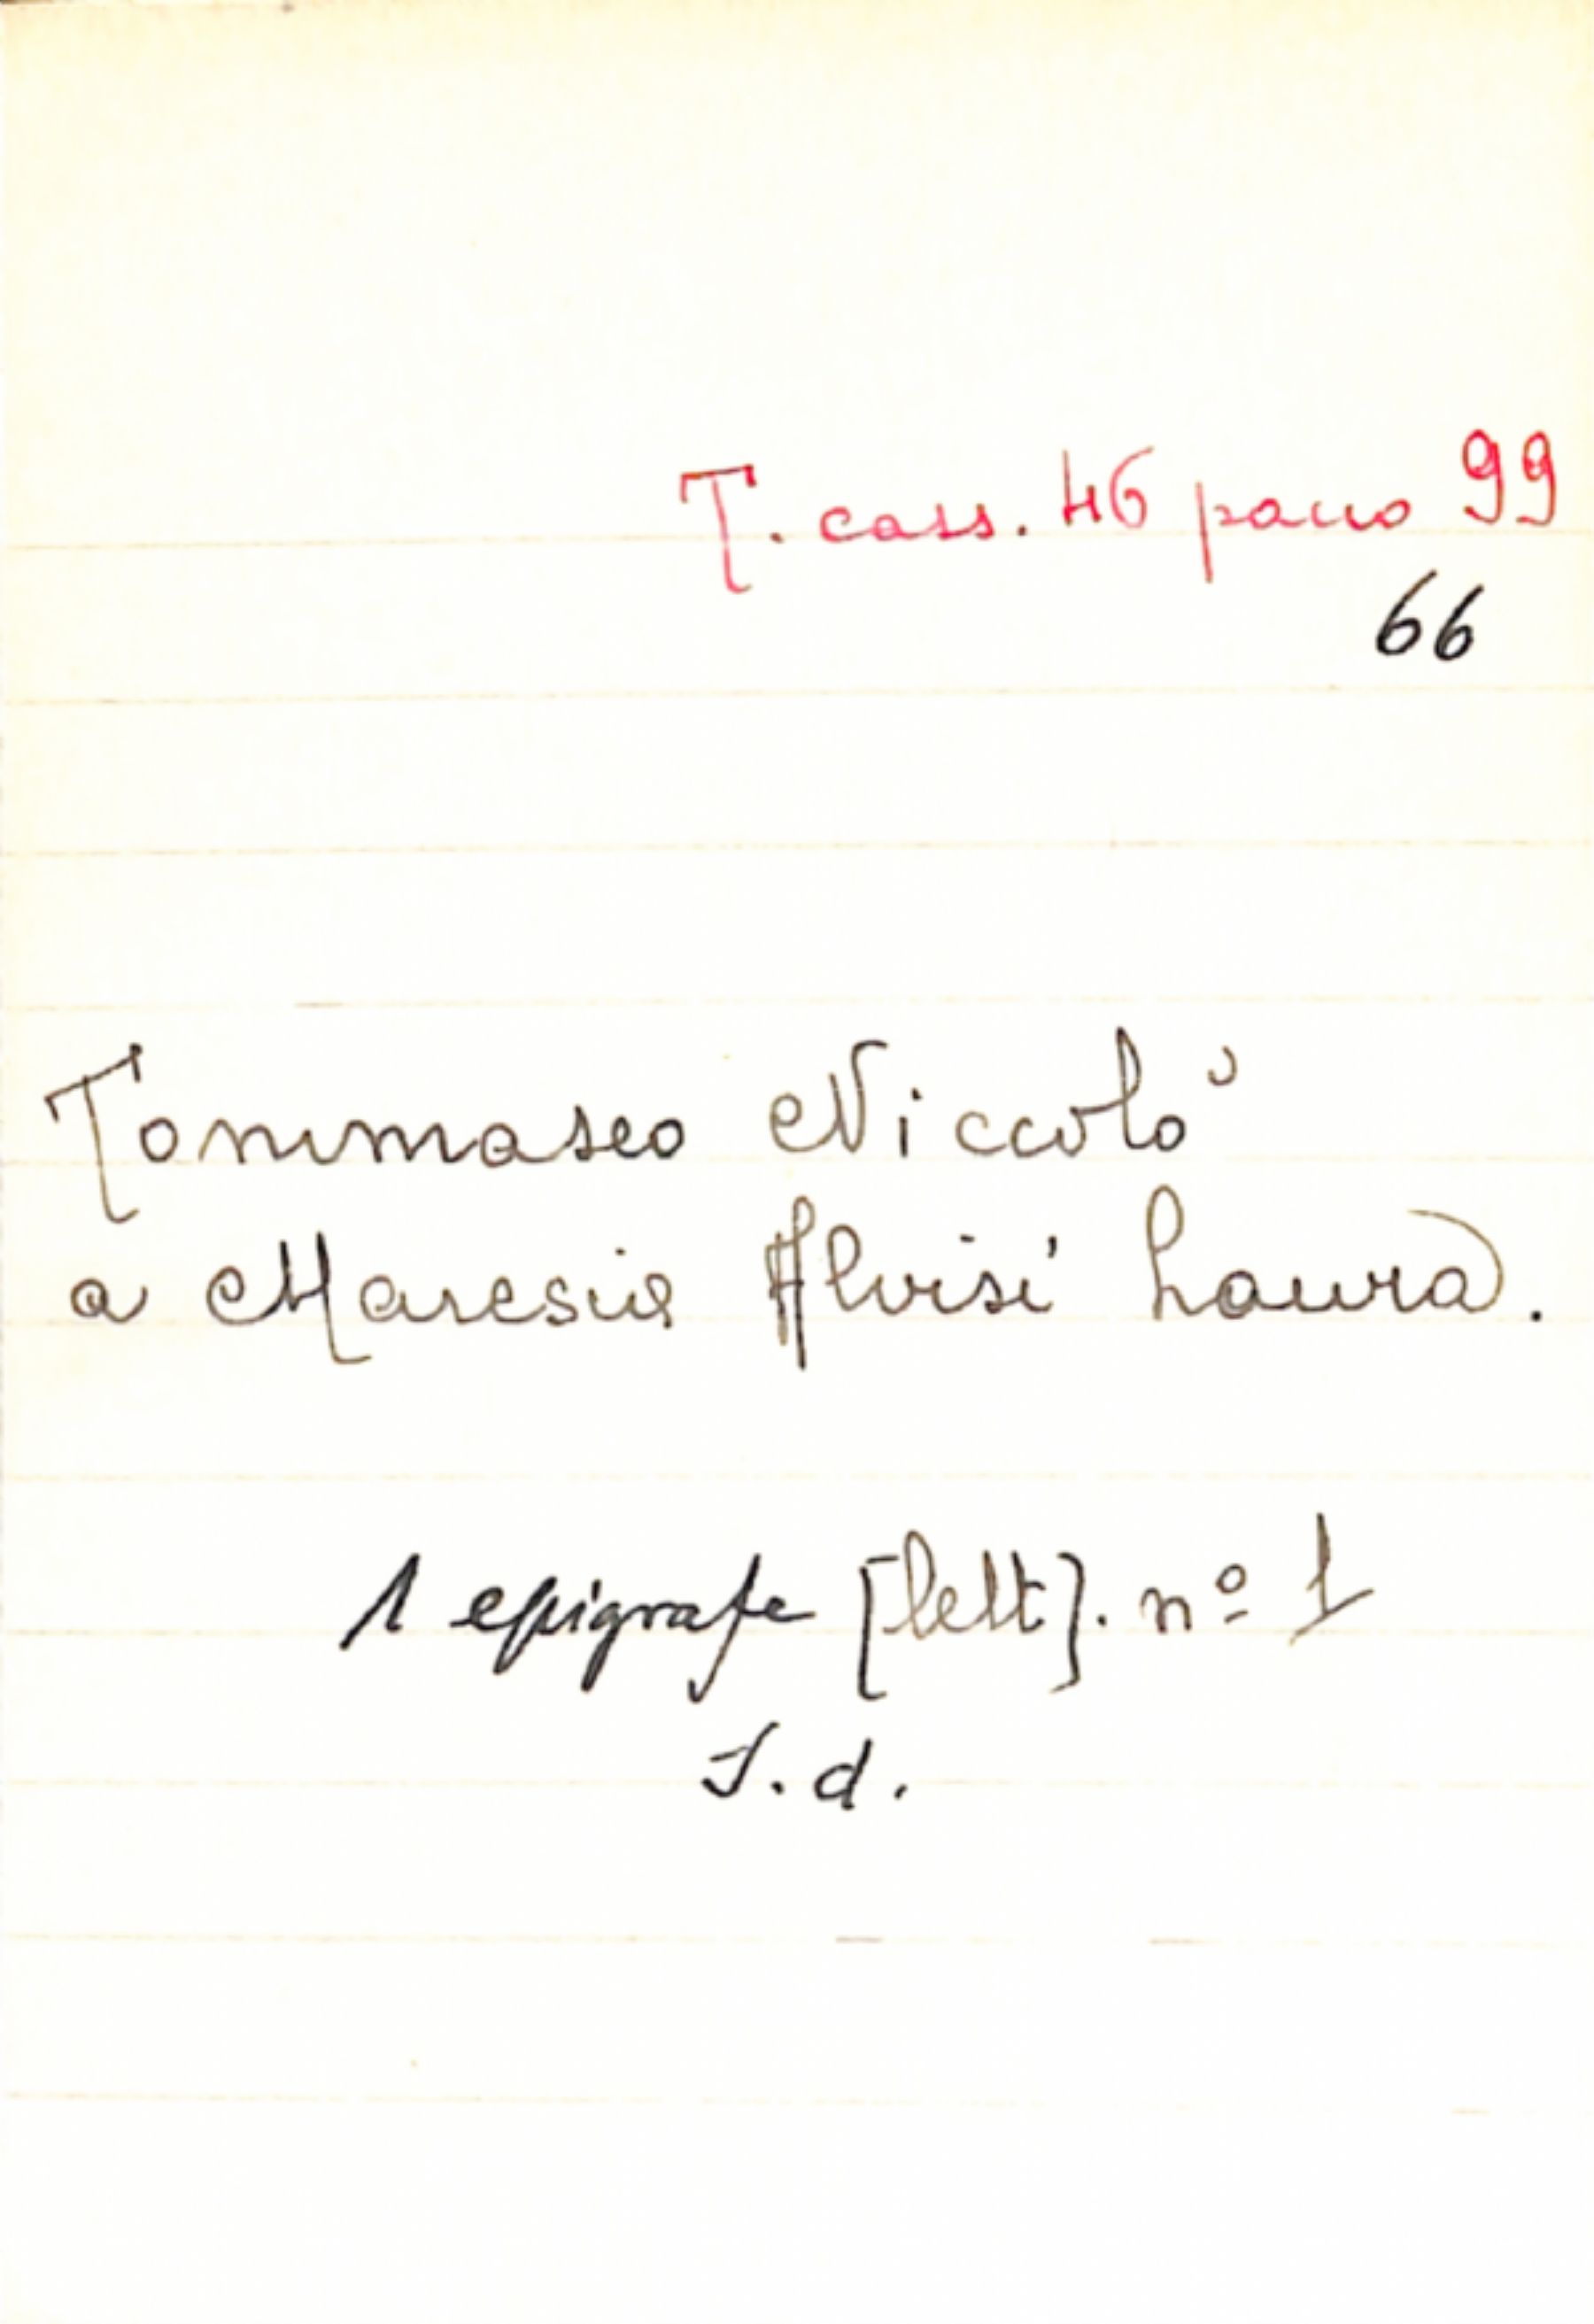 T. cass. 46 pacco 99
66
Tommaseo Niccolò
a Maresio Alvisi Laura.
1 epigrafe [lett]. nº 1
S. d.